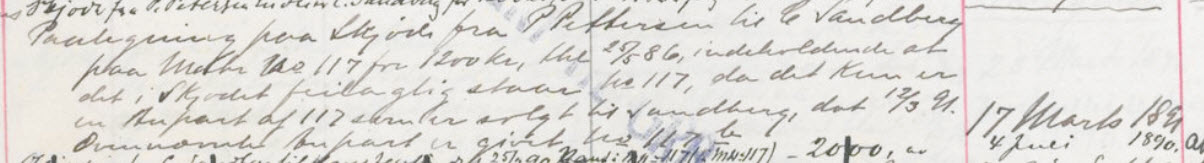 Skjøde fra P. Petersen
Paategning paa Skjøde fra P Pettersen til C Sandberg
paa Matr No 117 for 1200 kr, thl 25/5 86, indeholdende at
det i Skjødet feilagtig staar No 117, da det kun er
en Anpart af 117 som er solgt til Sandberg, dat 12/3 91.
17 Marts 1891
Ovennævnte Anpart er givet No 117 b
4 Juli 1890.
25/1 90 117 - 2000,